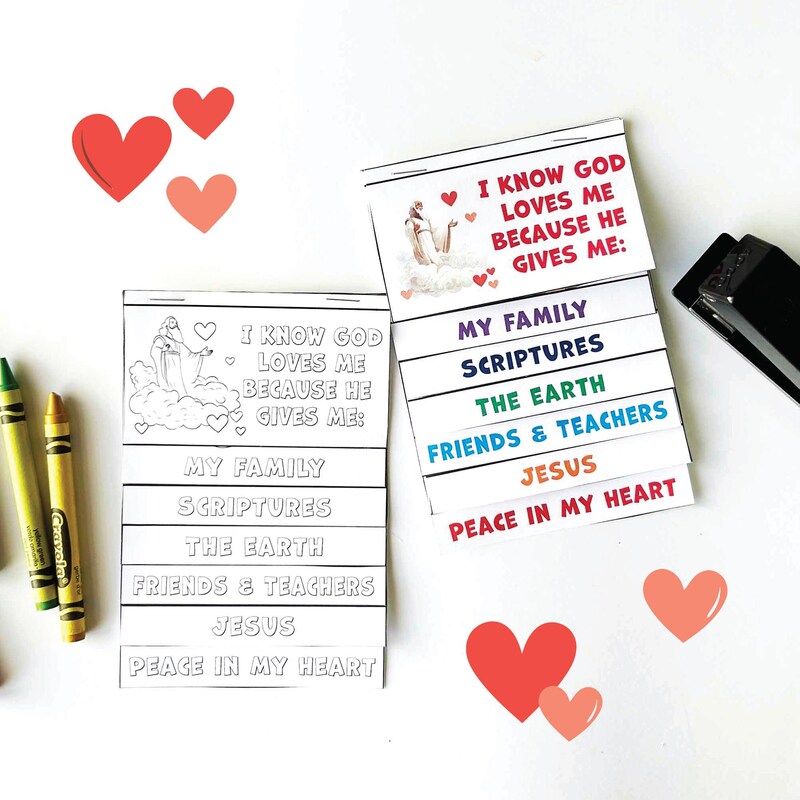 I KNOW GOD
LOVES ME
BECAUSE HE
GIVES ME:
MY FAMILY
SCRIPTURES
THE EARTH
FRIENDS & TEACHERS
JESUS
PEACE IN MY HEART
I KNOW GOD
LOVES ME
BECAUSE HE
GIVES ME:
MY FAMILY
SCRIPTURES
THE EARTH
FRIENDS & TEACHERS
JESUS
PEACE IN MY HEART
yellow green
Crayola